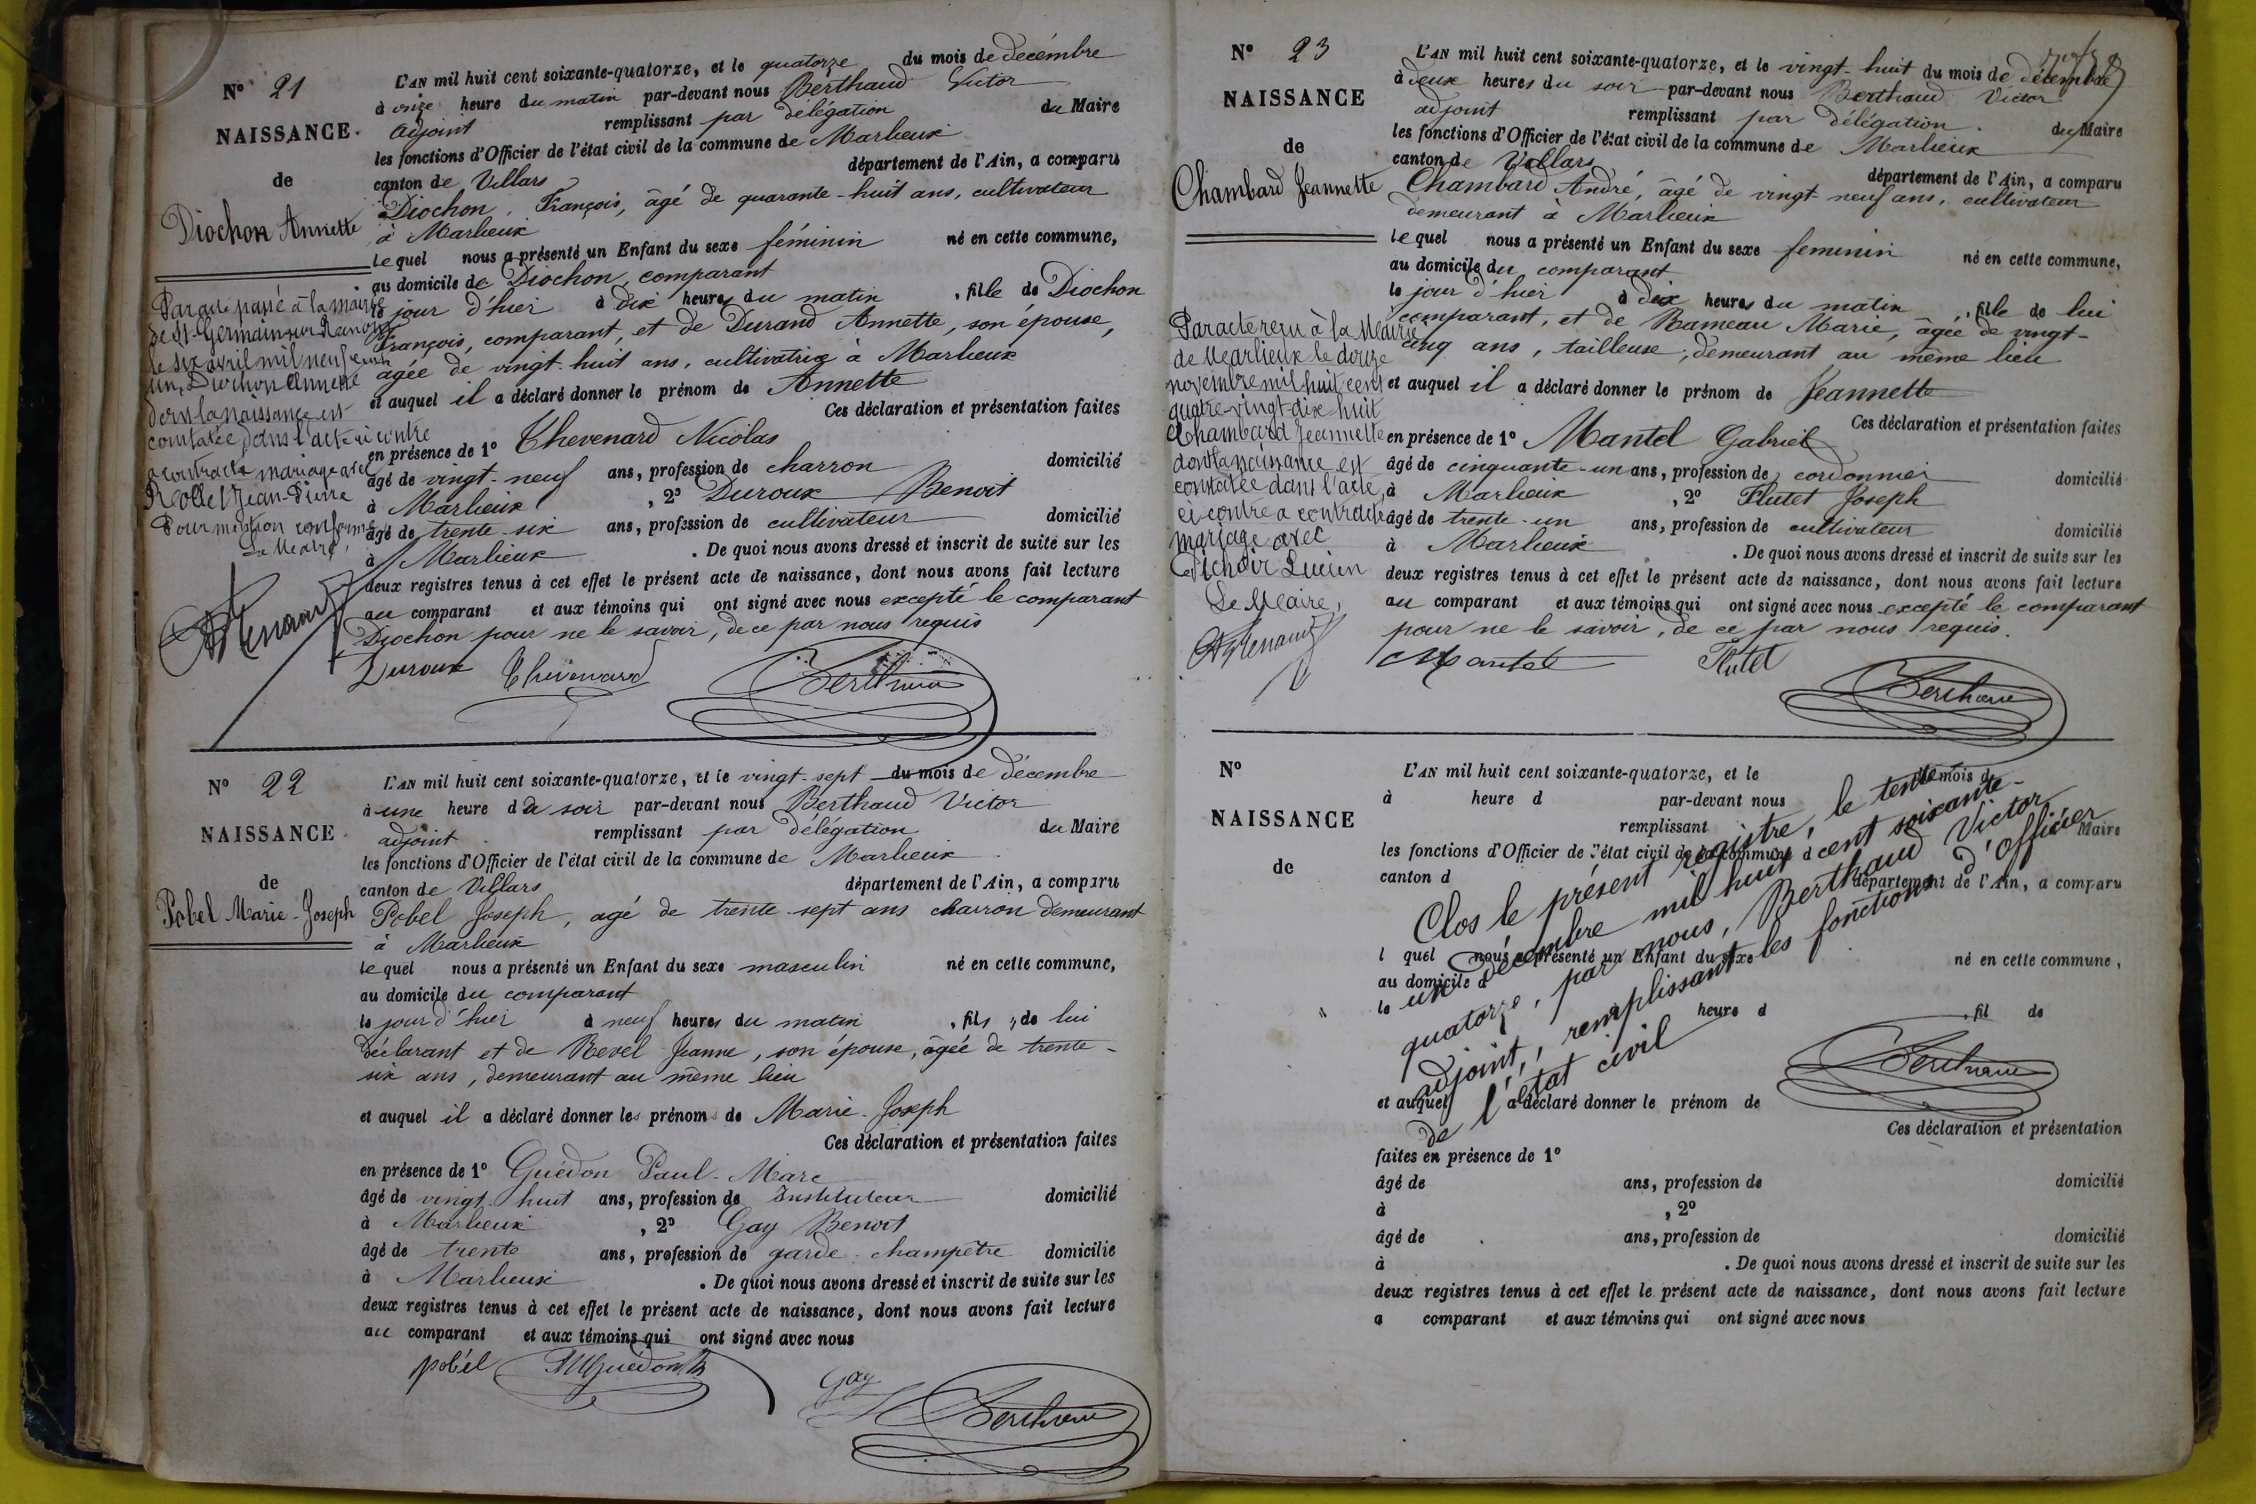 N° 21
NAISSANCE
de
Diochon Annette
L'AN mil huit cent soixante-quatorze, et le quatorze du mois de décembre
à onze heure du matin par-devant nous Berthaud Victor
adjoint remplissant par délégation du Maire
les fonctions d'Officier de l'état civil de la commune de Marlieux
canton de Villars département de l'Ain, a comparu
Diochon, François, âgé de quarante-huit ans, cultivateur
à Marlieux
lequel nous a présenté un Enfant du sexe féminin né en cette commune,
au domicile de Diochon, comparant
le jour d'hier à dix heures du matin, fille de Diochon
François, comparant, et de Durand Annette, son épouse,
âgée de vingt-huit ans, cultivatrice à Marlieux
et auquel il a déclaré donner le prénom de Annette
Ces déclaration et présentation faites
en présence de 1° Thevenard Nicolas
âgé de vingt-neuf ans, profession de charron domicilié
à Marlieux, 2° Duroux Benoit
âgé de trente-six ans, profession de cultivateur domicilié
à Marlieux. De quoi nous avons dressé et inscrit de suite sur les
deux registres tenus à cet effet le présent acte de naissance, dont nous avons fait lecture
au comparant et aux témoins qui ont signé avec nous excepté le comparant
Diochon pour ne le savoir, de ce par nous requis
Duroux Thévenard Berthaud
Par acte passé à la mairie
de St-Germain-sur-Renon
le six avril mil neuf cent
un, Diochon Annette
dont la naissance est
constatée dans l'acte ci contre
a contracté mariage avec
Rollet Jean-Pierre
Pour mention conforme
Le Maire,
N° 22
NAISSANCE
de
Pobel Marie-Joseph
L'AN mil huit cent soixante-quatorze, et le vingt-sept du mois de décembre
à une heure du soir par-devant nous Berthaud Victor
adjoint remplissant par délégation du Maire
les fonctions d'Officier de l'état civil de la commune de Marlieux
canton de Villars département de l'Ain, a comparu
Pobel Joseph, agé de trente-sept ans charron demeurant
à Marlieux
lequel nous a présenté un Enfant du sexe masculin né en cette commune,
au domicile du comparant
le jour d'hier à neuf heures du matin, fils, de lui
déclarant et de Revel Jeanne, son épouse, âgée de trente-
six ans, demeurant au même lieu
et auquel il a déclaré donner les prénoms de Marie-Joseph
Ces déclaration et présentation faites
en présence de 1° Guédon Paul-Marc
âgé de vingt-huit ans, profession de Instituteur domicilié
à Marlieux, 2° Gay Benoit
âgé de trente ans, profession de garde-champêtre domicilié
à Marlieux. De quoi nous avons dressé et inscrit de suite sur les
deux registres tenus à cet effet le présent acte de naissance, dont nous avons fait lecture
au comparant et aux témoins qui ont signé avec nous
pobél Guédon Gay Berthaud
N° 23
NAISSANCE
de
Chambard Jeannette
L'AN mil huit cent soixante-quatorze, et le vingt-huit du mois de décembre
à deux heures du soir par-devant nous Berthaud Victor
adjoint remplissant par délégation. du Maire
les fonctions d'Officier de l'état civil de la commune de Marlieux
canton de Villars département de l'Ain, a comparu
Chambard André, âgé de vingt-neuf ans, cultivateur
demeurant à Marlieux
lequel nous a présenté un Enfant du sexe feminin né en cette commune,
au domicile du comparant
le jour d'hier à dix heures du matin, fille de lui
comparant, et de Rameau Marie, âgée de vingt-
cinq ans, tailleuse, demeurant au même lieu
et auquel il a déclaré donner le prénom de Jeannette
Ces déclaration et présentation faites
en présence de 1° Mantel Gabriel
âgé de cinquante-un ans, profession de cordonnier domicilié
à Marlieux, 2° Flutet Joseph
âgé de trente-un ans, profession de cultivateur domicilié
à Marlieux. De quoi nous avons dressé et inscrit de suite sur les
deux registres tenus à cet effet le présent acte de naissance, dont nous avons fait lecture
au comparant et aux témoins qui ont signé avec nous excepté le comparant
pour ne le savoir, de ce par nous requis.
Mantel Flutet Berthaud
Par acte reçu à la Mairie
de Marlieux le douze
novembre mil huit cent
quatre-vingt-dix huit
Chambard Jeannette
dont la naissance est
constatée dans l'acte
ci contre a contracté
mariage avec
Pichoir Lucien
Le Maire,
N°
NAISSANCE
de
L'AN mil huit cent soixante-quatorze, et le du mois d
à heure d par-devant nous
remplissant Maire
les fonctions d'Officier de l'état civil de la commune d
canton d département de l'Ain, a comparu
l quel nous a présenté un Enfant du sexe né en cette commune,
au domicile d
le heure d, fil de
et auquel a déclaré donner le prénom de
Ces déclaration et présentation
faites en présence de 1°
âgé de ans, profession de domicilié
à, 2°
âgé de ans, profession de domicilié
à. De quoi nous avons dressé et inscrit de suite sur les
deux registres tenus à cet effet le présent acte de naissance, dont nous avons fait lecture
a comparant et aux témoins qui ont signé avec nous
Clos le présent registre, le trente-
un décembre mil huit cent soixante-
quatorze, par nous, Berthaud Victor
adjoint, remplissant les fonctions d'officier
de l'état civil
Berthaud